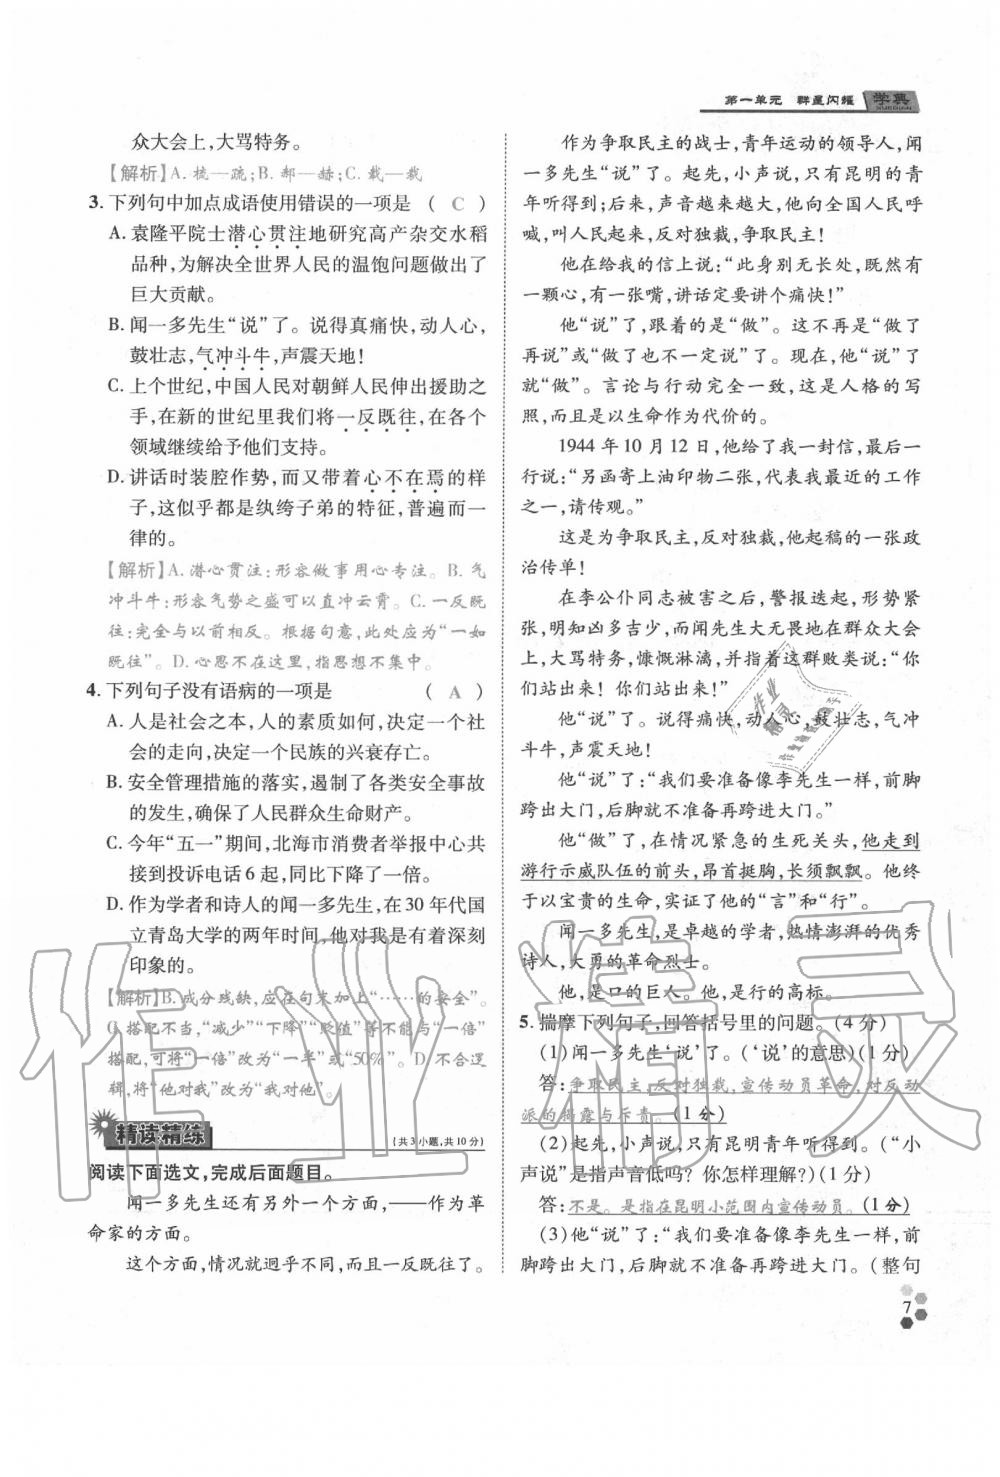 第一单元 群星闪耀 学典
XUEDIAN
众大会上,大骂特务。
【解析】A. 梳—疏;B. 郝—赫;C. 裁—载
3. 下列句中加点成语使用错误的一项是 ( C )
A. 袁隆平院士潜心贯注地研究高产杂交水稻
品种,为解决全世界人民的温饱问题做出了
巨大贡献。
B. 闻一多先生“说”了。说得真痛快,动人心,
鼓壮志,气冲斗牛,声震天地!
C. 上个世纪,中国人民对朝鲜人民伸出援助之
手,在新的世纪里我们将一反既往,在各个
领域继续给予他们支持。
D. 讲话时装腔作势,而又带着心不在焉的样
子,这似乎都是纨绔子弟的特征,普遍而一
律的。
【解析】A. 潜心贯注:形容做事用心专注。B. 气
冲斗牛:形容气势之盛可以直冲云霄。C. 一反既
往:完全与以前相反。根据句意,此处应为“一如
既往”。D. 心思不在这里,指思想不集中。
4. 下列句子没有语病的一项是 ( A )
A. 人是社会之本,人的素质如何,决定一个社
会的走向,决定一个民族的兴衰存亡。
B. 安全管理措施的落实,遏制了各类安全事故
的发生,确保了人民群众生命财产。
C. 今年“五一”期间,北海市消费者举报中心共
接到投诉电话 6 起,同比下降了一倍。
D. 作为学者和诗人的闻一多先生,在 30 年代国
立青岛大学的两年时间,他对我是有着深刻
印象的。
【解析】B. 成分残缺,应在句末加上“……的安全”。
C. 搭配不当,“减少”“下降”“贬值”等不能与“一倍”
搭配,可将“一倍”改为“一半”或“50%”。D. 不合逻
辑,将“他对我”改为“我对他”。
精读精练 (共 3 小题,共 10 分)
阅读下面选文,完成后面题目。
闻一多先生还有另外一个方面,——作为革
命家的方面。
这个方面,情况就迥乎不同,而且一反既往了。
作为争取民主的战士,青年运动的领导人,闻
一多先生“说”了。起先,小声说,只有昆明的青
年听得到;后来,声音越来越大,他向全国人民呼
喊,叫人民起来,反对独裁,争取民主!
他在给我的信上说:“此身别无长处,既然有
一颗心,有一张嘴,讲话定要讲个痛快!”
他“说”了,跟着的是“做”。这不再是“做了
再说”或“做了也不一定说”了。现在,他“说”了
就“做”。言论与行动完全一致,这是人格的写
照,而且是以生命作为代价的。
1944 年 10 月 12 日,他给了我一封信,最后一
行说:“另函寄上油印物二张,代表我最近的工作
之一,请传观。”
这是为争取民主,反对独裁,他起稿的一张政
治传单!
在李公仆同志被害之后,警报迭起,形势紧
张,明知凶多吉少,而闻先生大无畏地在群众大会
上,大骂特务,慷慨淋漓,并指着这群败类说:“你
们站出来!你们站出来!”
他“说”了。说得痛快,动人心,鼓壮志,气冲
斗牛,声震天地!
他“说”了:“我们要准备像李先生一样,前脚
跨出大门,后脚就不准备再跨进大门。”
他“做”了,在情况紧急的生死关头,他走到
游行示威队伍的前头,昂首挺胸,长须飘飘。他
终于以宝贵的生命,实证了他的“言”和“行”。
闻一多先生,是卓越的学者,热情澎湃的优秀
诗人,大勇的革命烈士。
他,是口的巨人。他,是行的高标。
5. 揣摩下列句子,回答括号里的问题。(4 分)
(1)闻一多先生‘说’了。(‘说’的意思)(1 分)
答:争取民主,反对独裁,宣传动员革命,对反动
派的揭露与斥责。(1 分)
(2)起先,小声说,只有昆明的青年听得到。(“小
声说”是指声音低吗?你怎样理解?)(1 分)
答:不是。是指在昆明小范围内宣传动员。(1 分)
(3)他“说”了:“我们要准备像李先生一样,前
脚跨出大门,后脚就不准备再跨进大门。(整句
7
作业精灵
作业
精灵